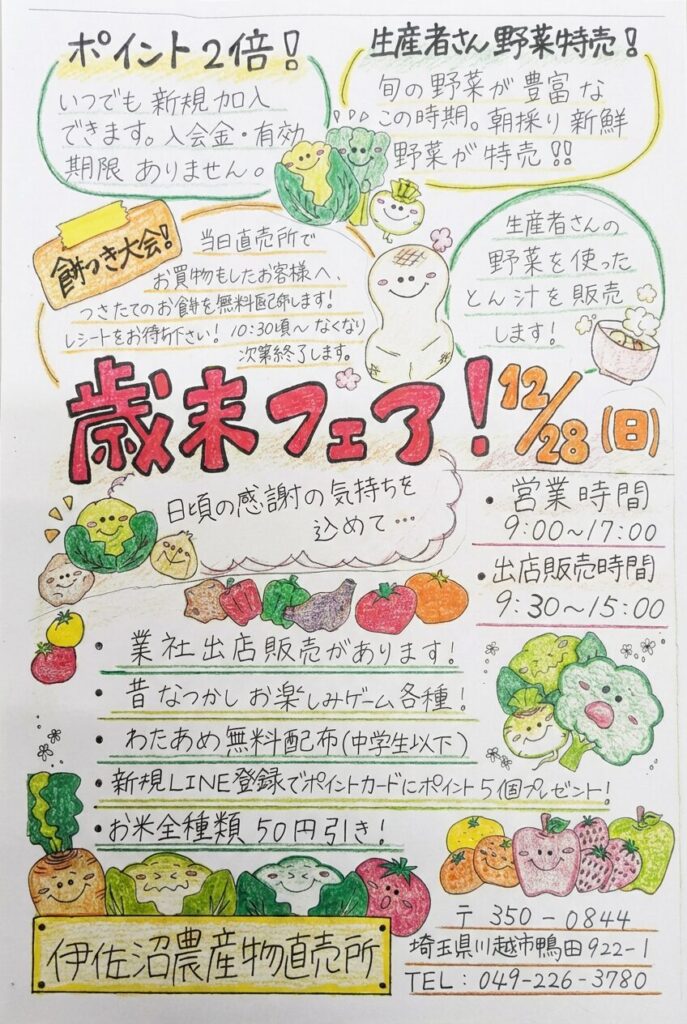 ポイント2倍!
いつでも新規加入
できます。入会金・有効
期限ありません。
生産者さん野菜特売!
旬の野菜が豊富な
この時期。朝採り新鮮
野菜が特売!!
餅つき大会!
当日直売所で
お買物もしたお客様へ、
つきたてのお餅を無料配布します!
レシートをお待ち下さい! 10:30頃〜なくなり
次第終了します。
生産者さんの
野菜を使った
とん汁を販売
します!
歳末フェア! 12/28(日)
日頃の感謝の気持ちを
込めて…
・営業時間
9:00~17:00
・出店販売時間
9:30~15:00
・業社出店販売があります!
・昔なつかしお楽しみゲーム各種!
・わたあめ無料配布(中学生以下)
・新規LINE登録でポイントカードにポイント5個プレゼント!
・お米全種類50円引き!
伊佐沼農産物直売所
〒350-0844
埼玉県川越市鴨田922-1
TEL:049-226-3780